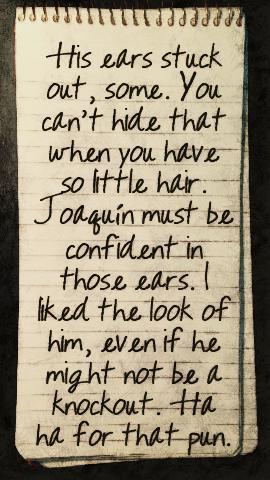 His ears stuck
out, some. You
can't hide that
when you have
so little hair.
Joaquín must be
confident in
those ears. I
liked the look of
him, even if he
might not be a
knockout. Ha
ha for that pun.